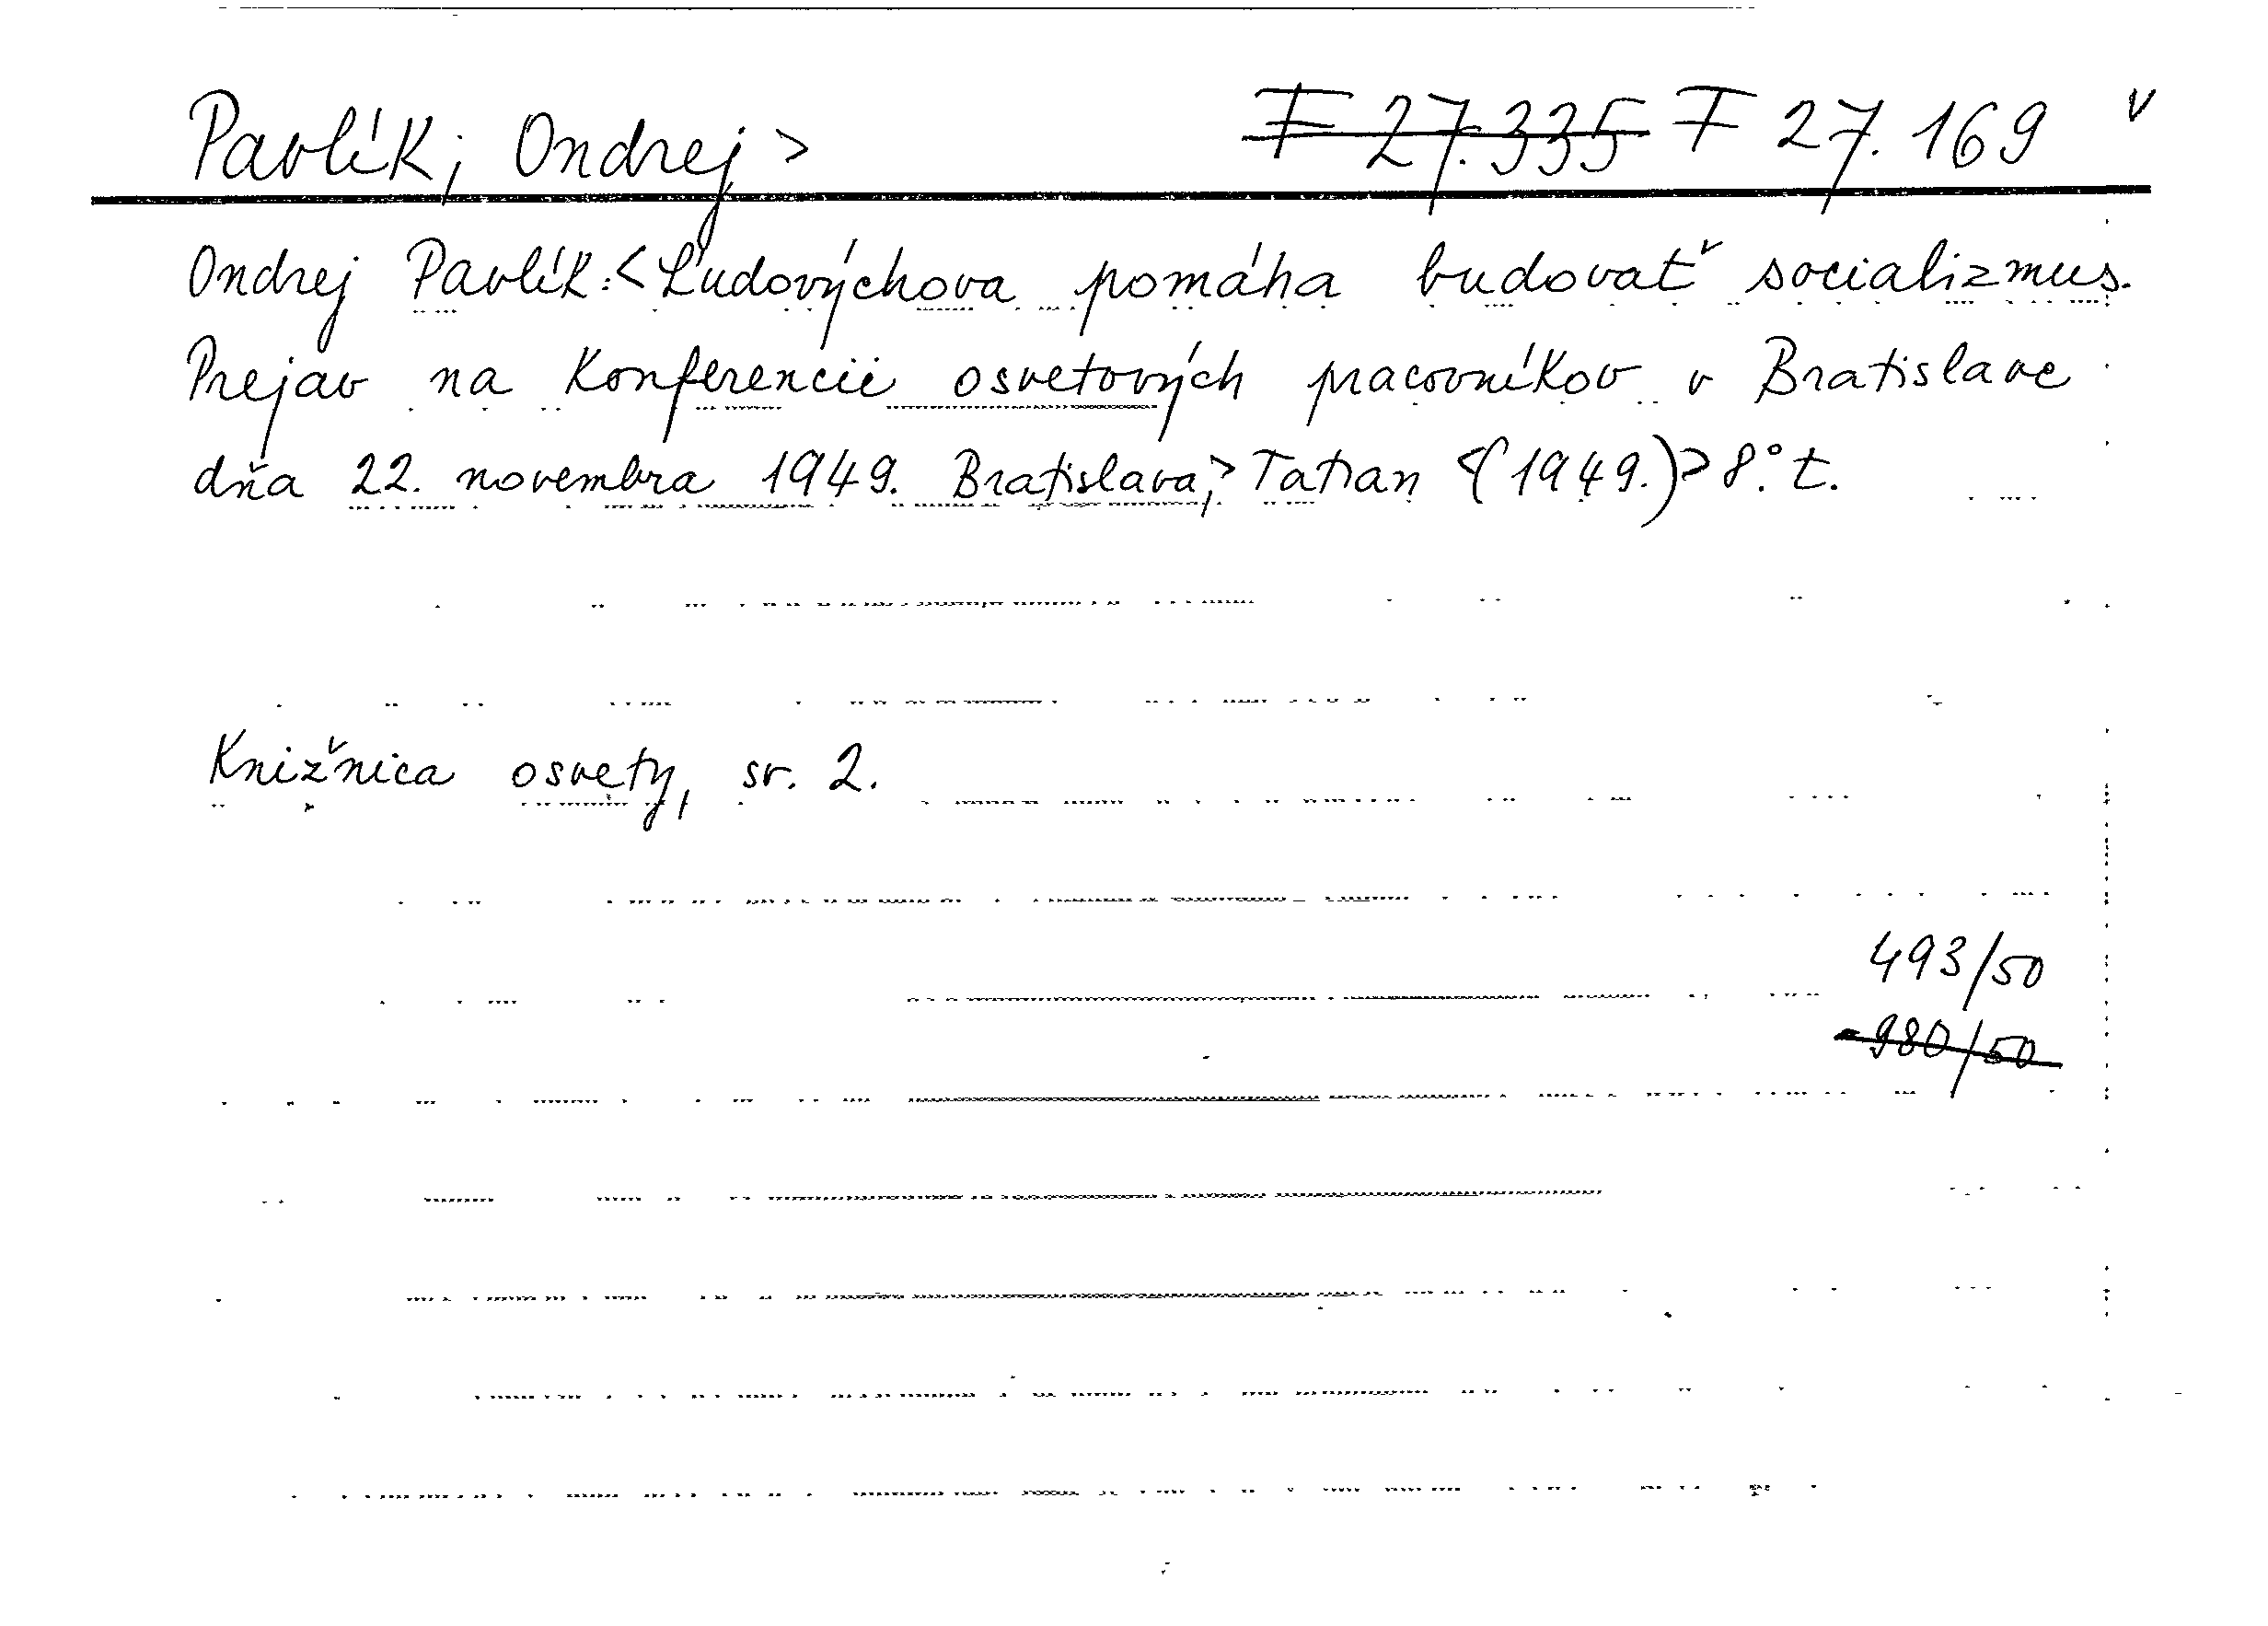 Pavlík, Ondrej > F 27.335 F 27.169 v
Ondrej Pavlík: < Ľudovýchova pomáha budovať socializmus.
Prejav na konferencii osvetových pracovníkov v Bratislave
dňa 22. novembra 1949. Bratislava, > Tatran <(1949.)> 8°. t.
Knižnica osvety, sv. 2.
493/50
980/50